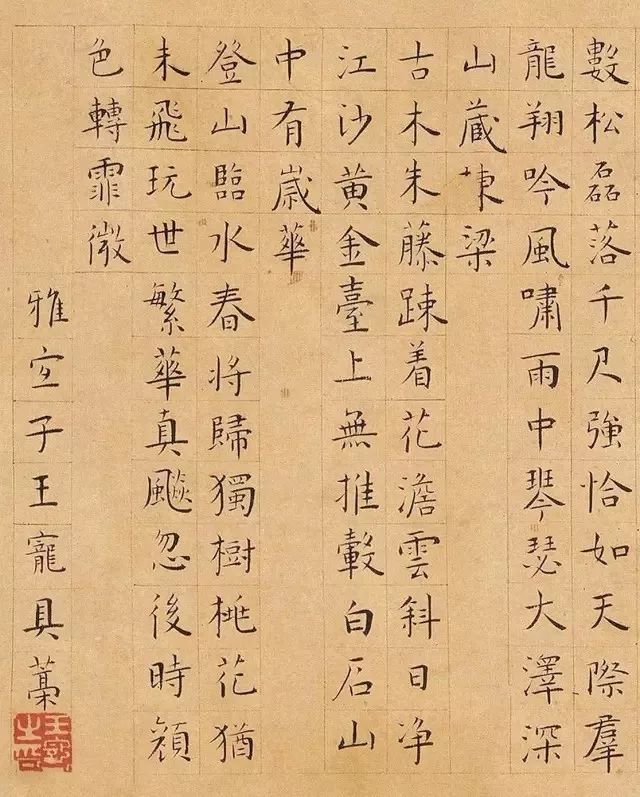 數松磊落千尺強恰如天際羣
龍翔吟風嘯雨中琴瑟大澤深
山藏棟梁
古木朱藤踈着花澹雲斜日净
江沙黄金臺上無推轂白石山
中有歲華
登山臨水春將歸獨樹桃花猶
未飛玩世繁華真飈忽後時顏
色轉霏微
雅宜子王寵具藁
王寵之印